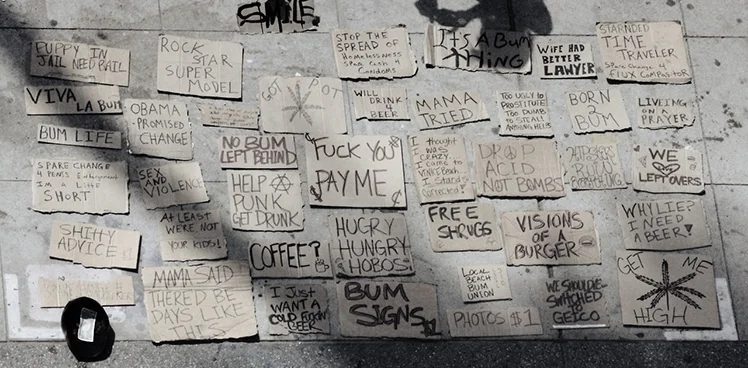 SMILE
PUPPY IN
JAIL NEED BAIL
ROCK
STAR
SUPER
MODEL
STOP THE
SPREAD OF
HOMELESSNESS
SPAR CASH 4
CONDOMS
IT'S A BUM
THING
WIFE HAD
BETTER
LAWYER
STARNDED
TIME
TRAVELER
SPARE CHANGE 4
FLUX COMPASITOR
VIVA
LA BUM
OBAMA
PROMISED
CHANGE
GOT POT
WILL
DRINK
4
BEER
MAMA
TRIED
TOO UGLY TO
PROSTITUTE
TOO DUMB
TO STEAL
ANYTHING HELPS
BORN
2
BUM
LIVEING
ON A
PRAYER
BUM LIFE
NO BUM
LEFT BEHIND
FUCK YOU
PAY ME
I thought
I was
CRAZY
I came to
VENICE Beach
I Stands
Corrected!
DROP
ACID
NOT BOMBS
WE
LEFTOVERS
SPARE CHANGE
4 PENIS Enlargement
I'm a Little
SHORT
SEX
AND
VIOLENCE
HELP
PUNK
GET DRUNK
AT LEAST
WERE NOT
YOUR KIDS!
FREE
SHRUGS
VISIONS
OF A
BURGER
WHY LIE?
I NEED
A BEER!
SHITTY
ADVICE
COFFEE?
HUGRY
HUNGRY
HOBOS
MAMA SAID
THERED BE
DAYS LIKE
THIS
I JUST
WANT A
COLD
BEER
BUM
SIGNS $1
LOCAL
BEACH
BUM
UNION
PHOTOS $1
WE SHOULDVE
SWITCHED
TO
GEICO
GET ME
HIGH